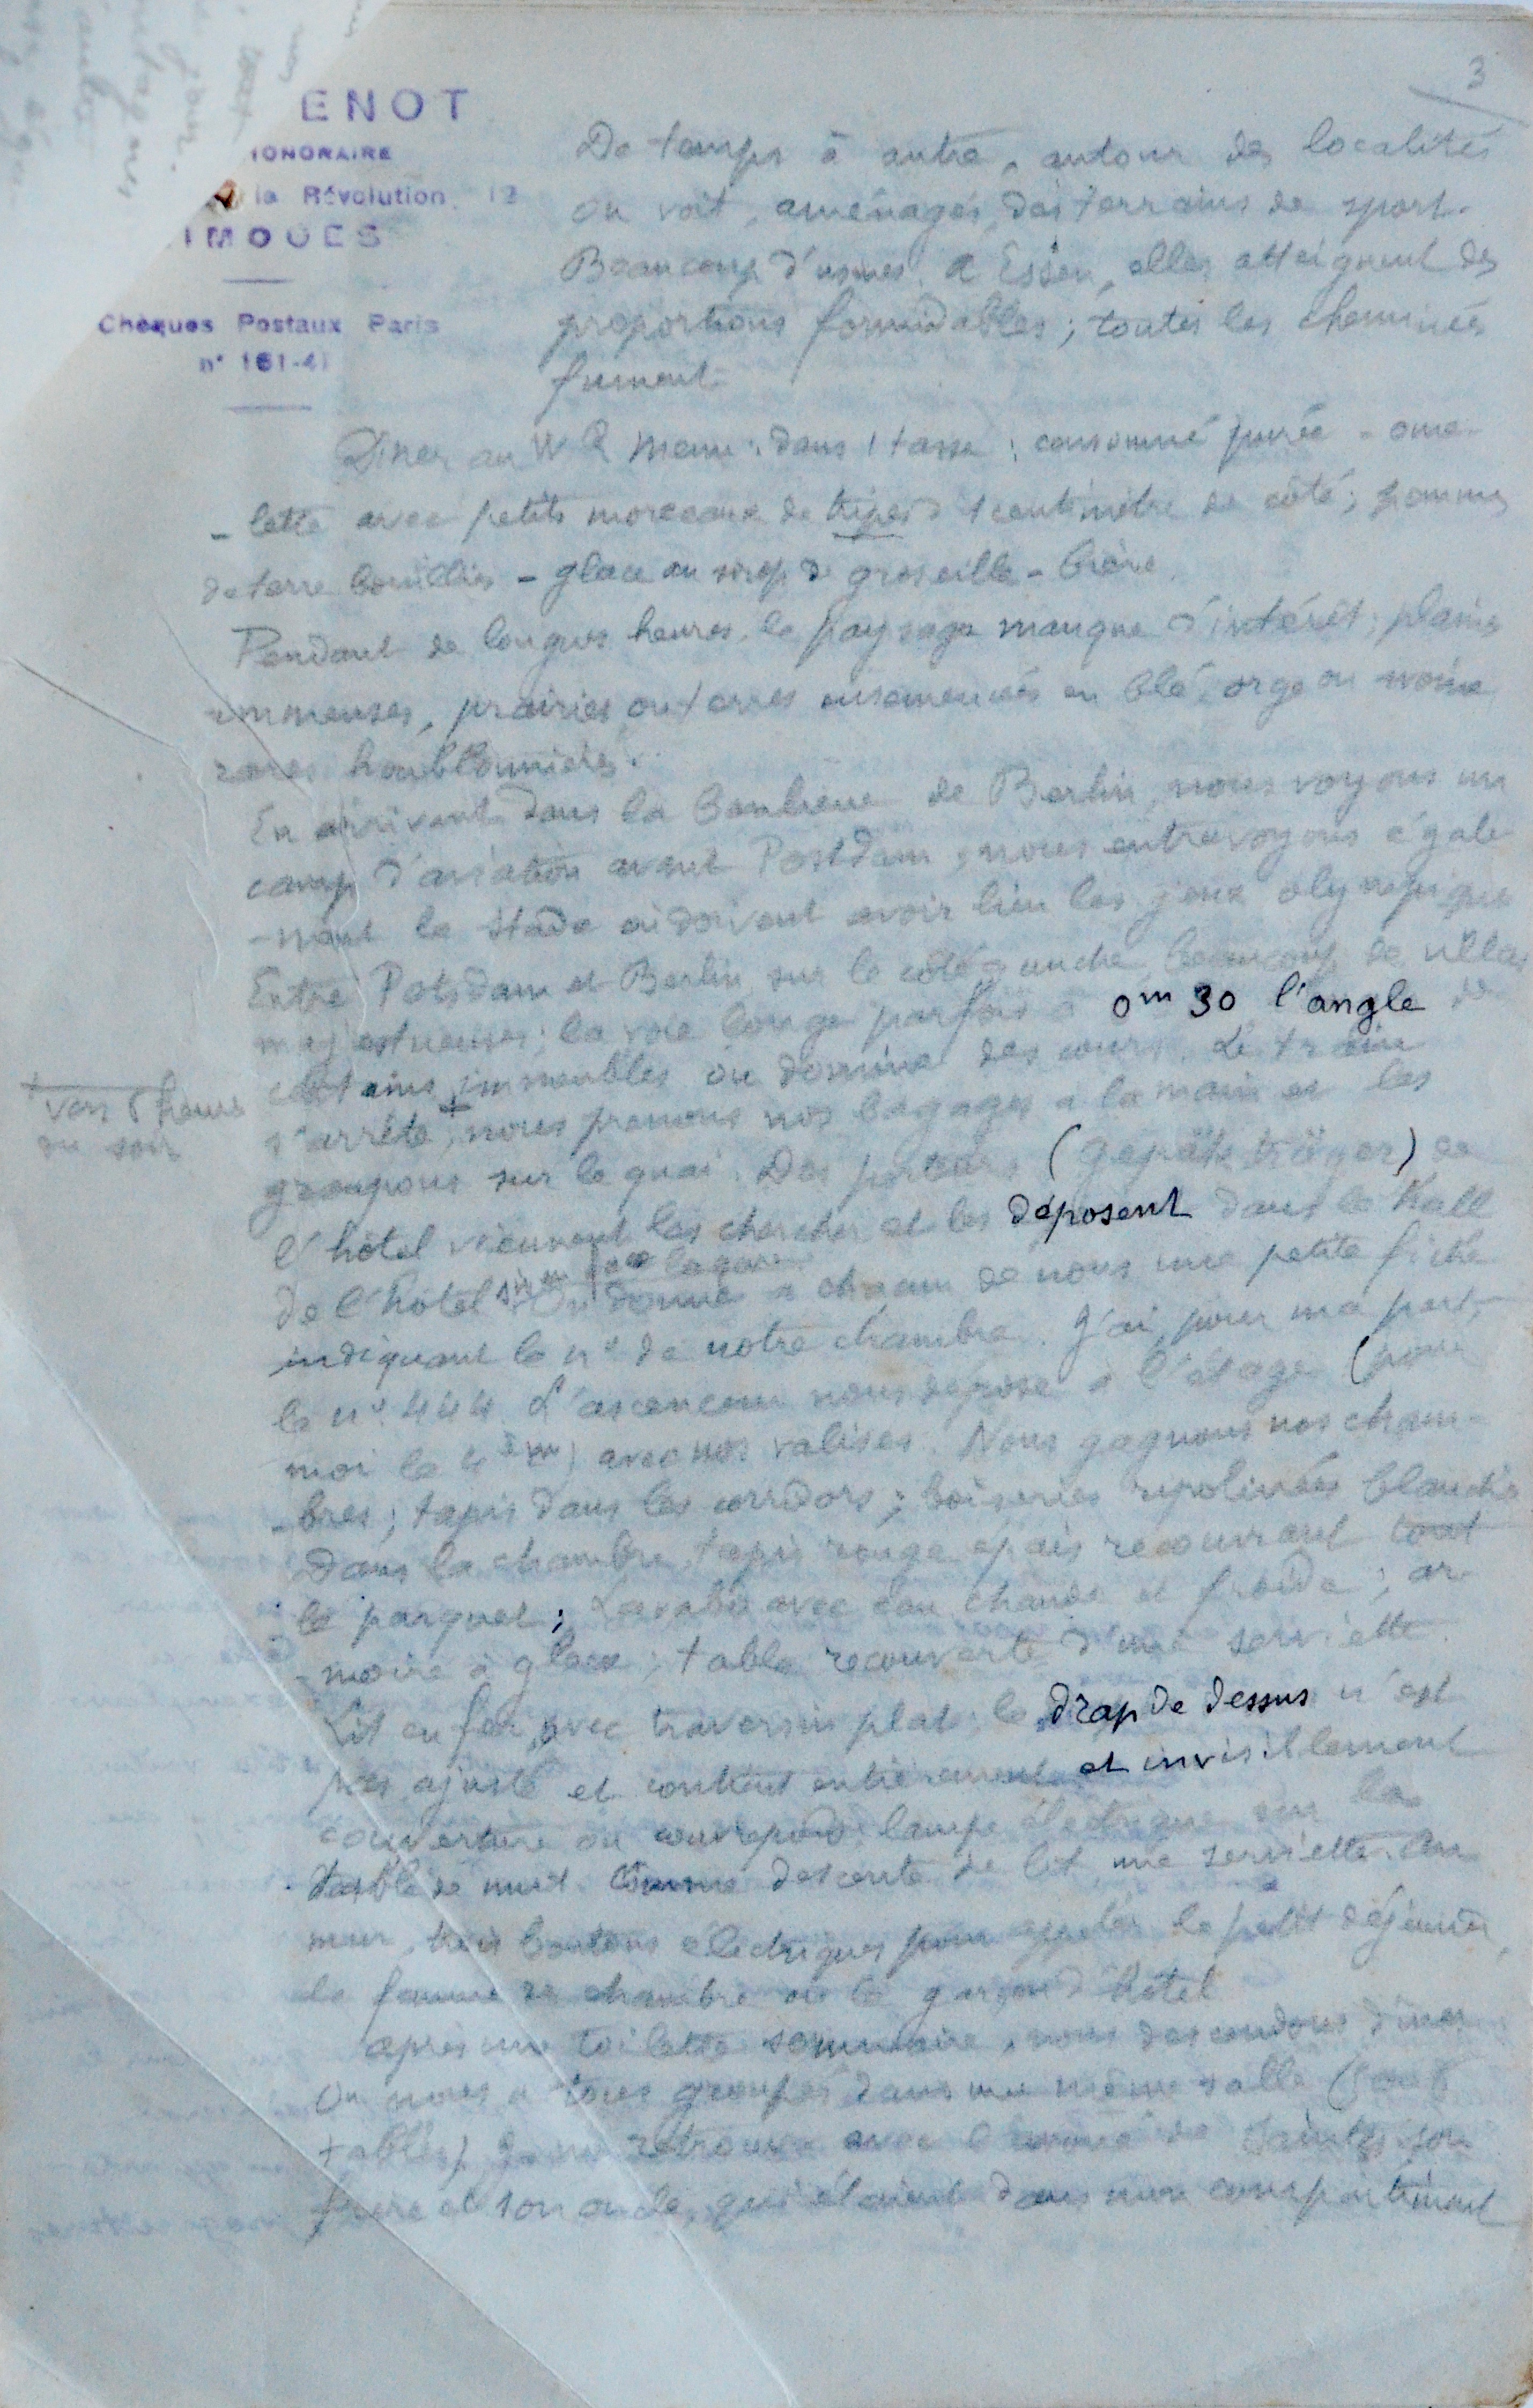 3
ENOT
HONORAIRE
la Révolution, 12
IMOGES
Chèques Postaux Paris
n° 161-41
De temps à autre, autour des localités
on voit, aménagés, des terrains de sport.
Beaucoup d'usines. A Essen, elles atteignent des
proportions formidables; toutes les cheminées
fument.
Diner au W R Menu: dans 1 tasse: consommé purée - ome-
- lette avec petits morceaux de tripes d 1 centimètre de côté; pommes
de terre bouillies - glace au sirop de groseille - bière.
Pendant de longues heures, le paysage manque d'intérêt: plaines
immenses, prairies ou terres ensemencées en blé, orge ou avoine
rares houblonnières.
En arrivant dans la banlieue de Berlin, nous voyons un
camp d'aviation avant Postdam; nous entrevoyons égale
-ment le stade où doivent avoir lieu les jeux olympiques
Entre Potsdam et Berlin, sur le côté gauche, beaucoup de villas
majestueuses; la voie longe parfois à 0m 30 l'angle de
certains immeubles ou domine des cours. Le train
s'arrête +, nous prenons nos bagages à la main et les
+ vers 6 heures
du soir
groupons sur le quai. Des porteurs (gepäckträger) de
l'hôtel viennent les chercher et les déposent dans le Hall
de l'hôtel situé face la gare. On donne à chacun de nous une petite fiche
indiquant le n° de notre chambre. J'ai, pour ma part,
le n° 444. L'ascenceur nous dépose à l'étage (pour
moi le 4ème) avec nos valises. Nous gagnons nos cham-
-bres; tapis dans les corridors; boiseries ripolinées blanches
Dans la chambre, tapis rouge épais recouvrant tout
le parquet; Lavabo avec eau chaude et froide; ar
-moire à glace; table recouverte d'une serviette.
Lit en fer, avec traversin plat; le drap de dessus n'est
pas ajusté et contient entièrement et invisiblement
couverture ou couvrepieds; lampe électrique sur la
table de nuit. Comme descente de lit, une serviette. Au
mur, trois boutons électriques pour appeler le petit déjeuner,
la femme de chambre ou le garçon d'hôtel
après une toilette sommaire, nous descendons diner
On nous a tous groupés dans une même salle
tables). Je me retrouve avec l'avoué de Saintes, son
frère et son oncle, qui étaient dans mon compartiment